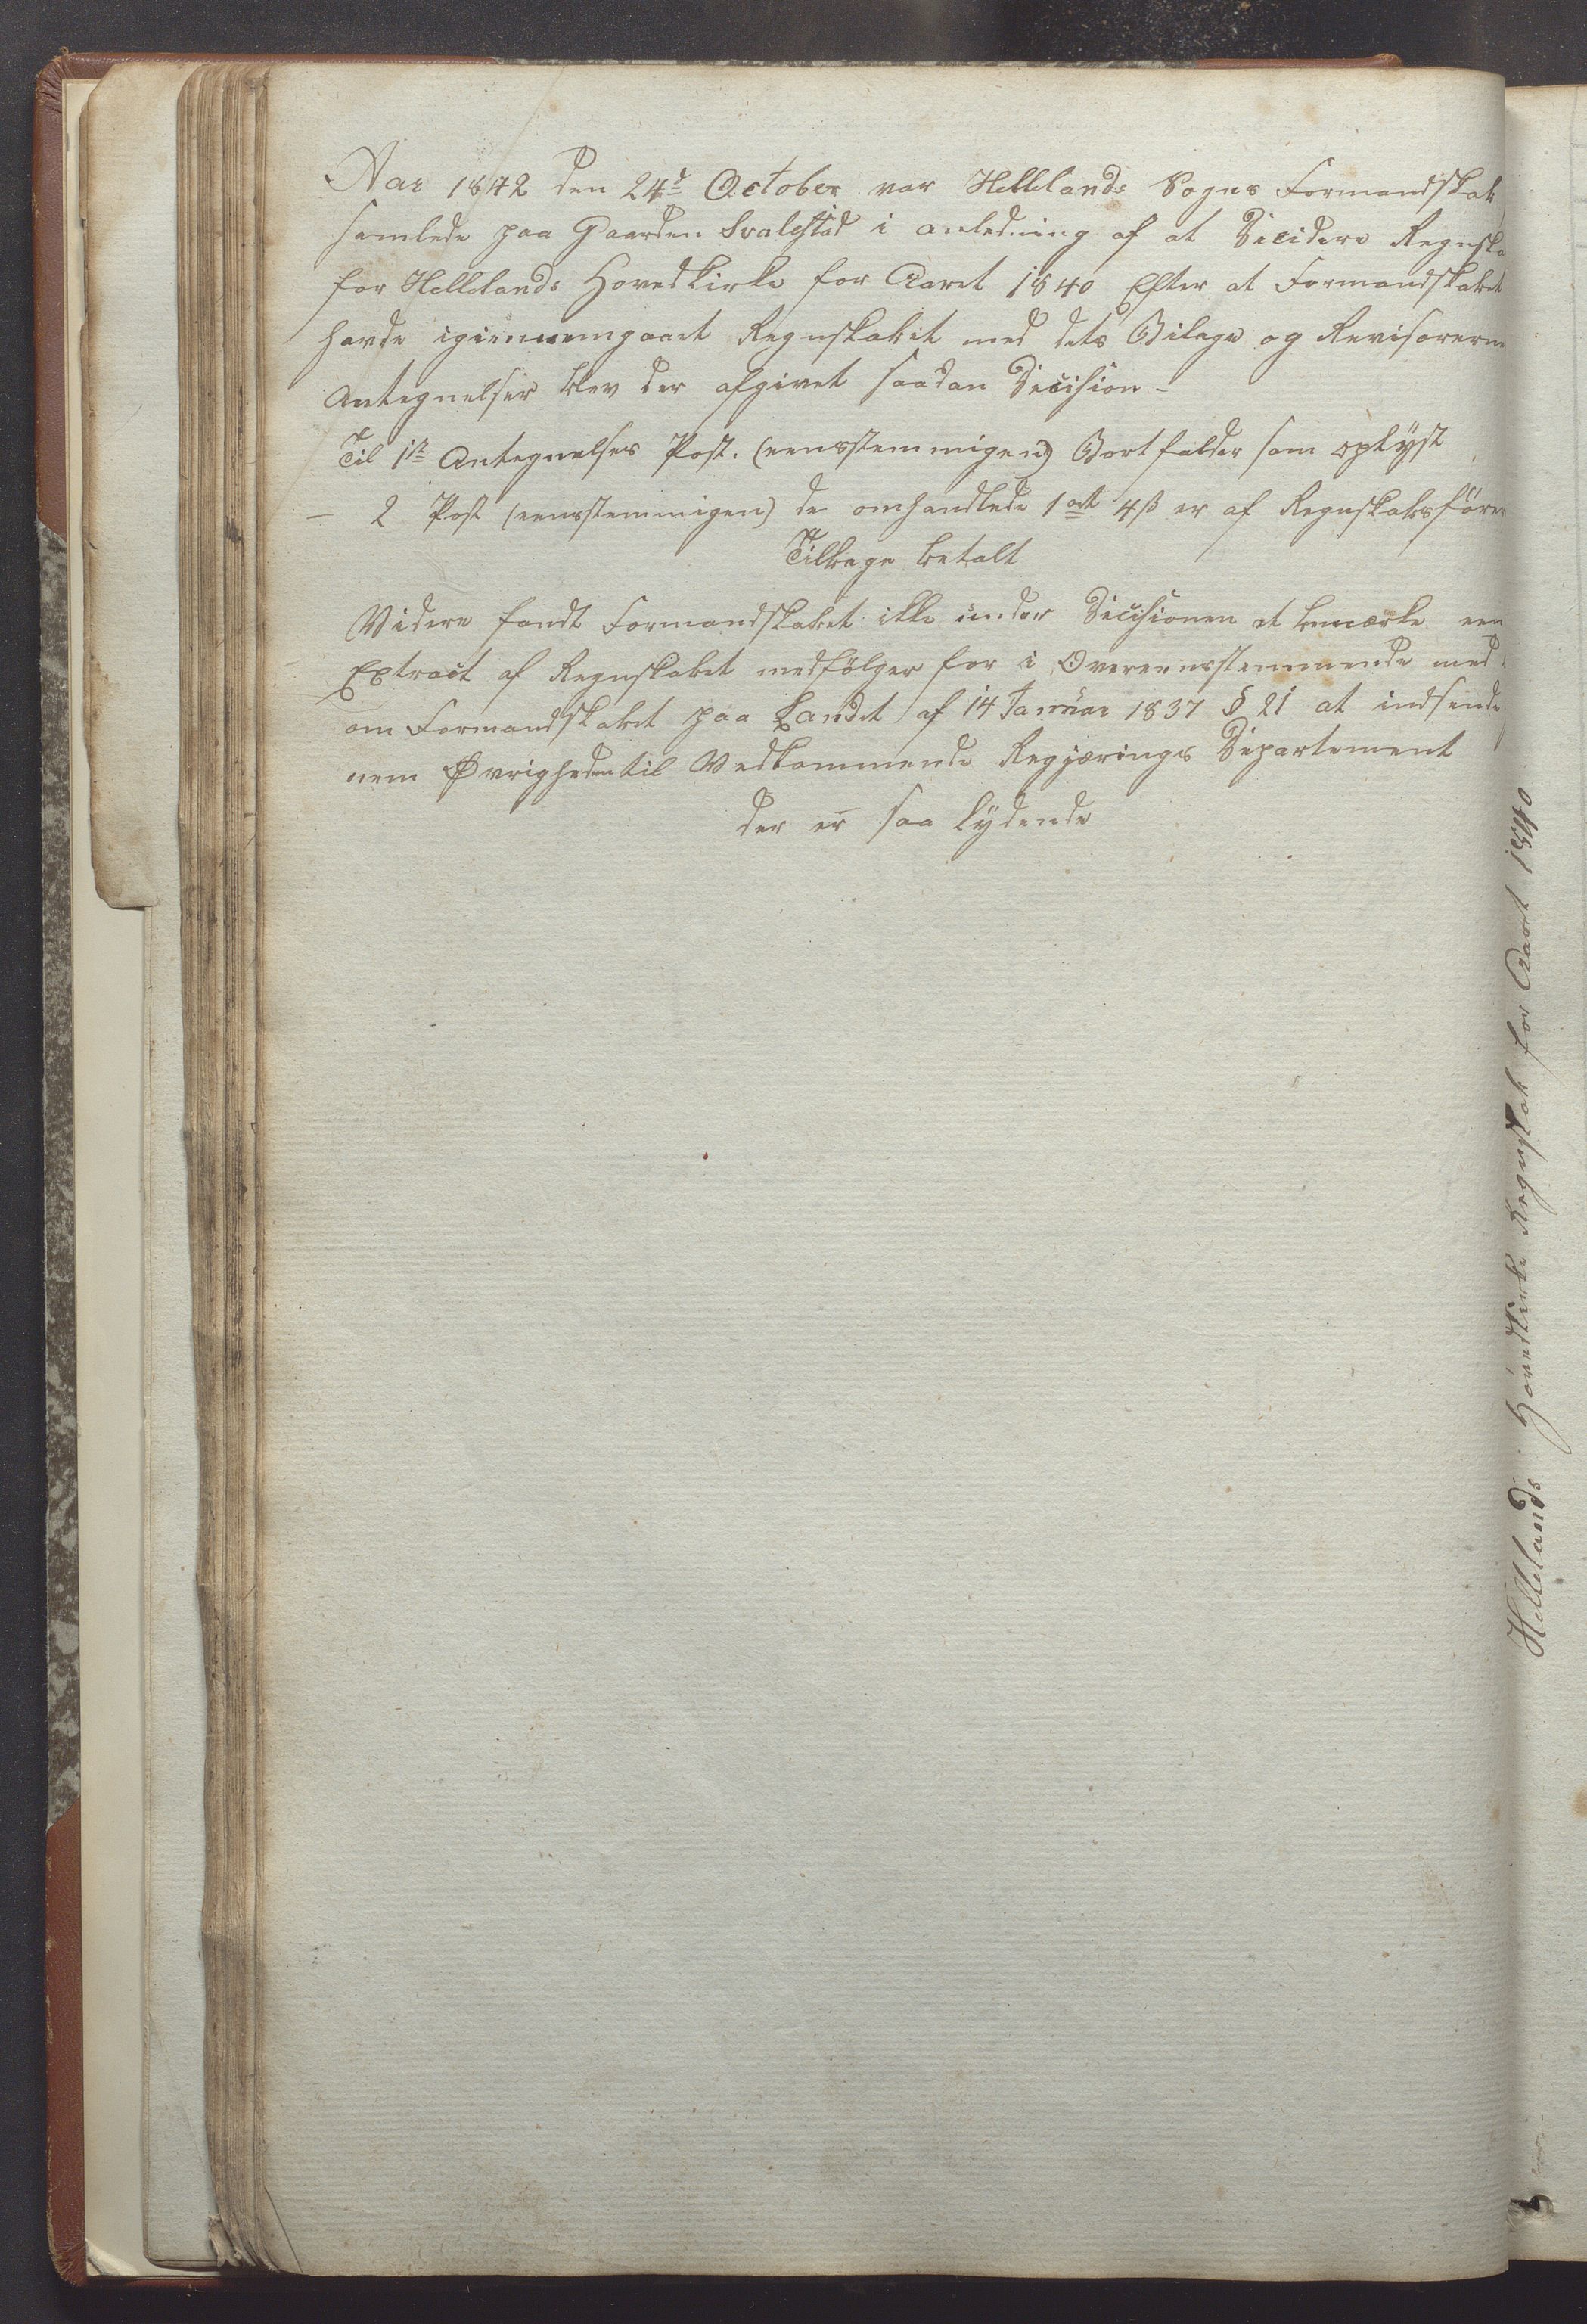 Aar 1842 den 24d October var Hellelands Sogns Formandskab
samlede paa Gaarden Svalestad i anledning af at Decidere Regnska
for Hellelands Hovedkirke for Aaret 1840 Efter at Formandskabet
havde igiennemgaaet Regnskabet med dets Bilage og Revisorerne
Antegnelser blev der afgivet saadan Decision -
Til 1te Antegnelses Post. (eensstemmigen) Bortfalder som oplyst
- 2 Post (eensstemmigen) de omhandlede 1 ort 4 ß er af Regnskabsföre
Tilbage betalt
Videre fandt Formandskabet ikke under Decisionen at bemærke een
Extract af Regnskabet medfölger for i Overeensstemmende med
om Formandskabet paa Landet af 14 Januar 1837 § 21 at indsende
nem Øvrigheden til Vedkommende Regjærings Departement
der er saa lydende
Hellelands Hovedkirke Regnskab for Aaret 1840